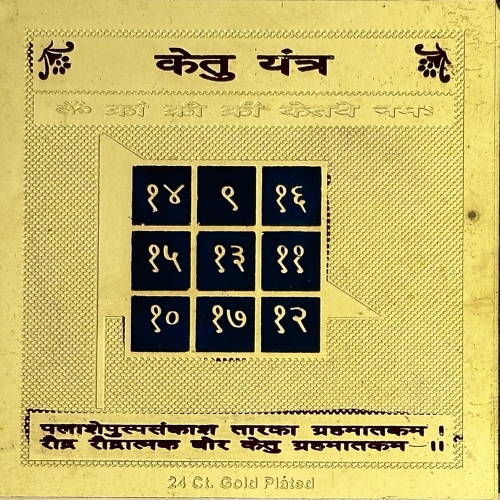 केतु यंत्र
ॐ क्रां क्रीं क्रौं केतवे नमः
१४ ९ १६
१५ १३ ११
१० १७ १२
पलाशपुस्पसंकाश तारका ग्रहमातकम ।
रौद्र रौद्रात्मक घोर केतु ग्रहमातकम ।।
24 Ct. Gold Plated